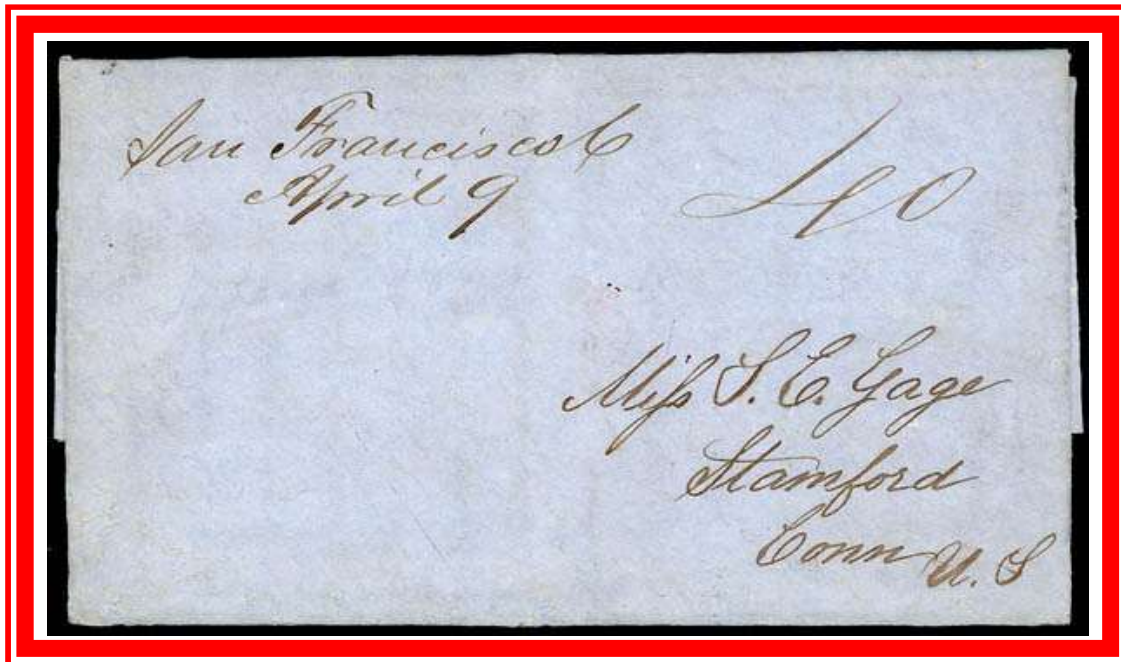 San Francisco C
April 9
40
Miss S. E. Gage
Stamford
Conn U. S